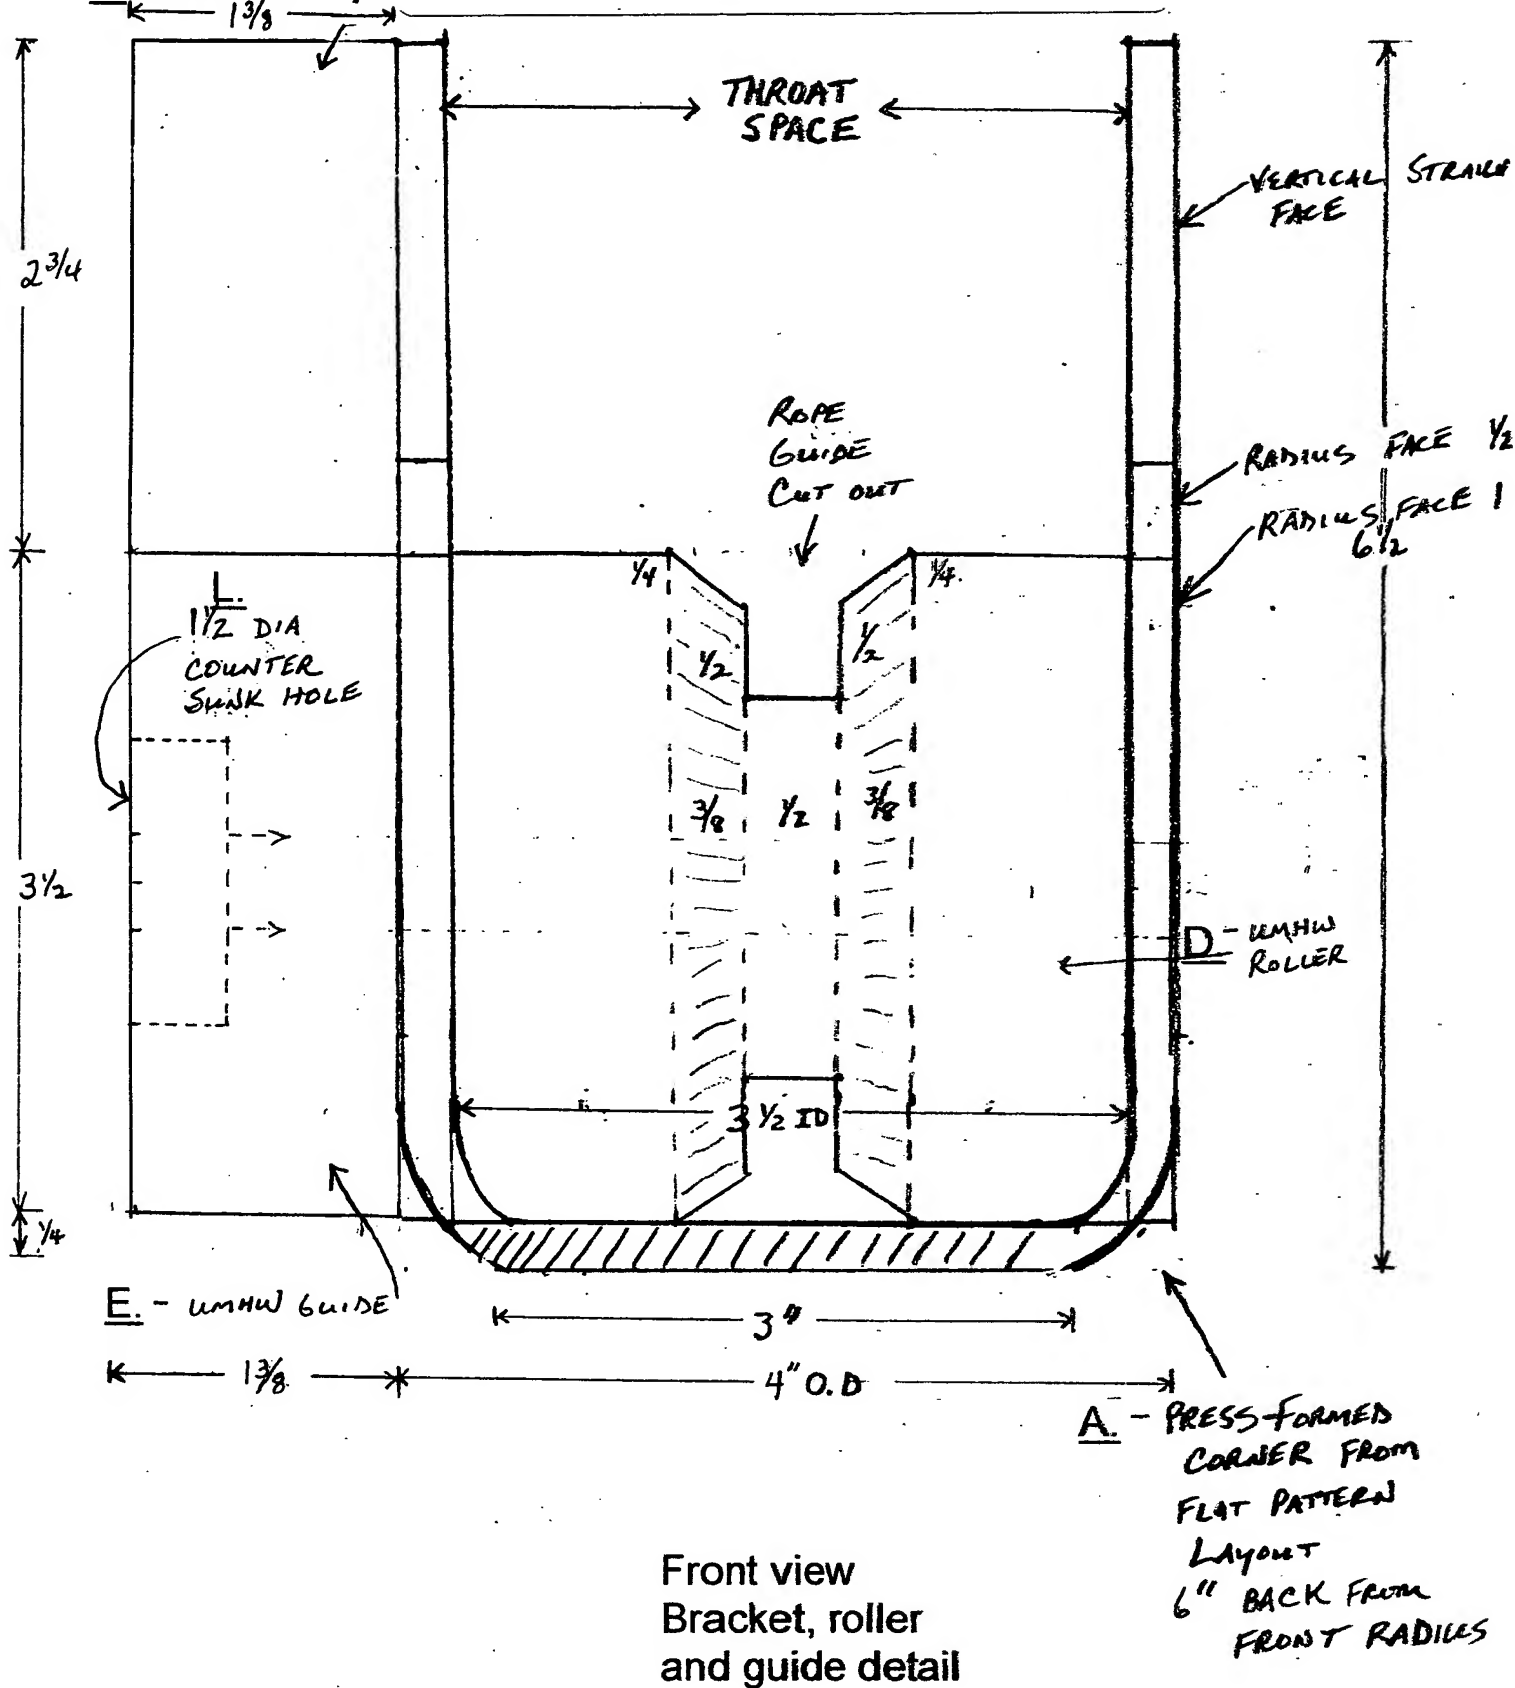 1 3/8
THROAT
SPACE
VERTICAL
FACE
2 3/4
ROPE
GUIDE
CUT OUT
RADIUS FACE 1/2
RADIUS FACE 1
6 1/2
1/4
1/4
L.
1 1/2 DIA
COUNTER
SUNK HOLE
1/2
1/2
3/8
1/2
3/8
3 1/2
D - UMHW
ROLLER
3 1/2 ID
1/4
E. - UMHW GUIDE
3"
1 3/8
4" O.D
A. - PRESS FORMED
CORNER FROM
FLAT PATTERN
LAYOUT
6" BACK FROM
FRONT RADIUS
Front view
Bracket, roller
and guide detail